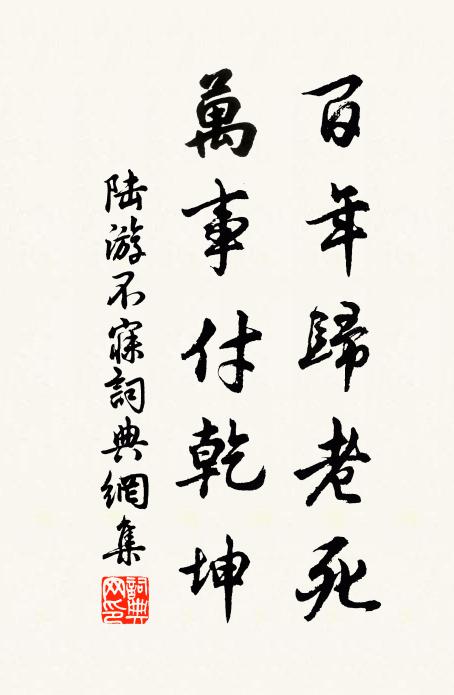 百年歸老死
萬事付乾坤
陆游不寐詞典網集
詞典網印